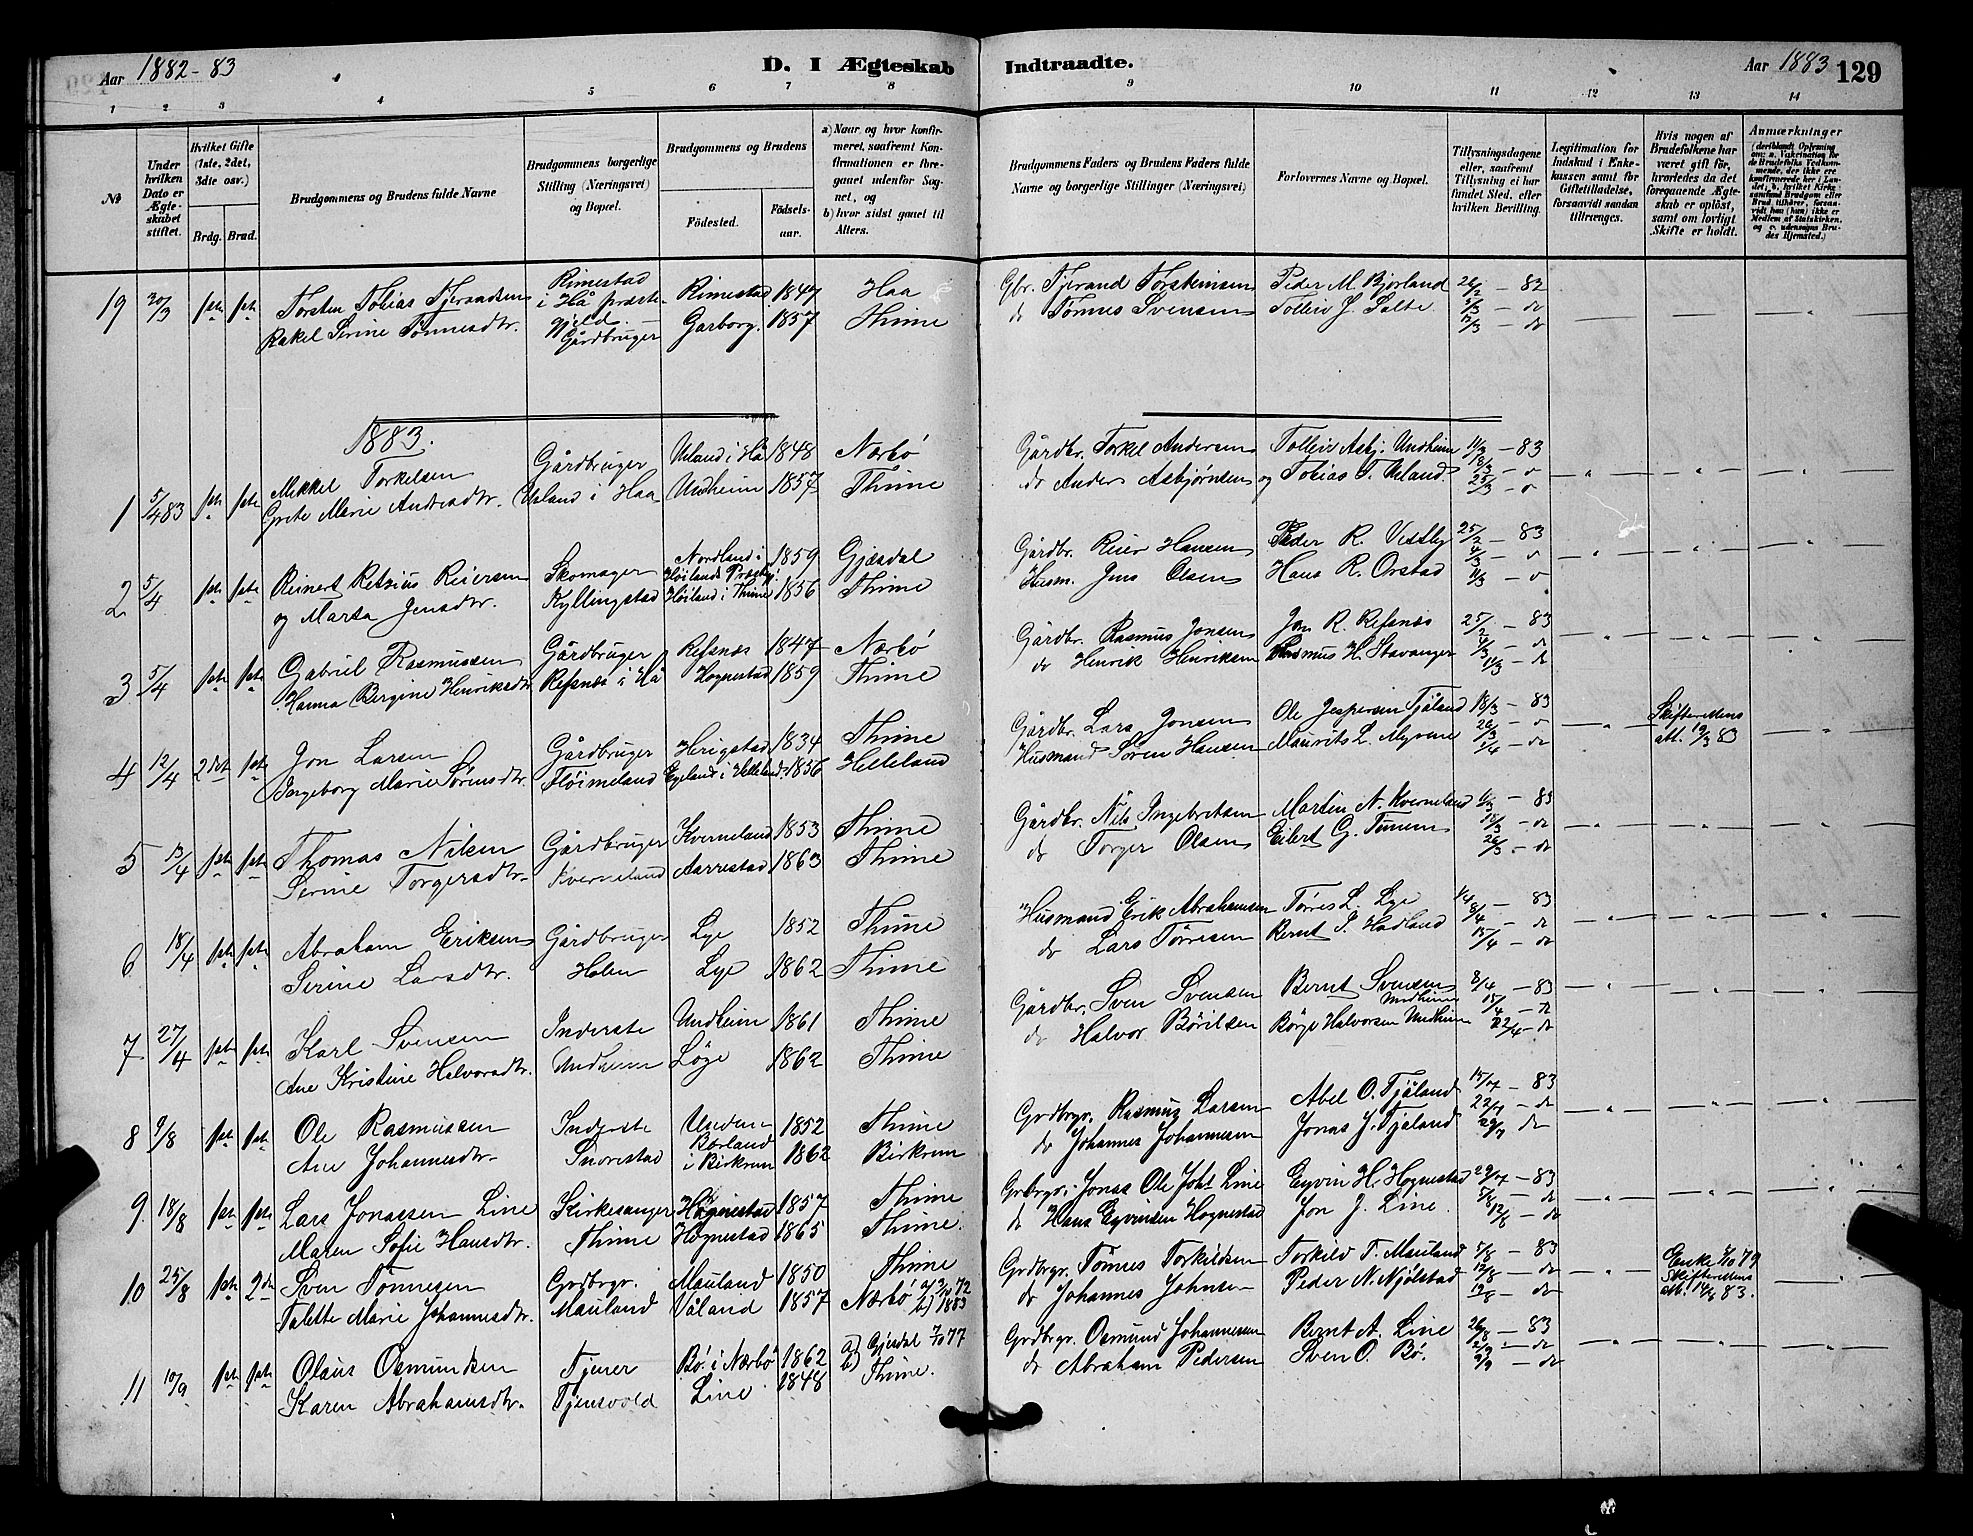 Aar 1882-83
D. I Ægteskab Indtraadte.
Aar 1883 129
1 2 3 4 5 6 7 8 9 10 11 12 13 14
№
Under hvilken Dato er Ægteskabet stiftet.
Hvilket Gifte (1ste, 2det, 3die osv.)
Brdg. Brud.
Brudgommens og Brudens fulde Navne
Brudgommens borgerlige Stilling (Næringsvei) og Bopæl.
Brudgommens og Brudens
Fødested.
Fødselsaar.
a) Naar og hvor konfirmeret, saafremt Konfirmationen er foregaaet udenfor Sognet, og
b) hvor sidst gaaet til Alters.
Brudgommens Faders og Brudens Faders fulde Navne og borgerlige Stillinger (Næringsvei)
Forlovernes Navne og Bopæl.
Tillysningsdagene eller, saafremt Tillysning ei har fundet Sted, efter hvilken Bevilling.
Legitimation for Indskud i Enkekassen samt for Giftetilladelse, forsaavidt saadan tiltrænges.
Hvis nogen af Brudefolkene har været gift før, hvorledes da det foregaaende Ægteskab er opløst, samt om lovligt Skifte er holdt.
Anmærkninger (deriblandt Oplysning om: a. Vakcination for de Brudefolks Vedkommende, der ikke ere konfirmerede her i Landet; b. hvilket Kirkesamfund Brudgom eller Brud tilhører, forsaavidt han (hun) ikke er Medlem af Statskirken, og c. udensogns Brudes Hjemsted.)
19 30/3 1ste 1ste Torsten Tobias Tjerandsen Rimestad i Hå præstegjeld. Gårdbruger Rimestad 1847 Haa Gbr. Tjerand Torsteinsen Peder M. Bjorland 26/2 - 82
Rakel Serine Tønnesdtr. Garborg. 1857 Thime do Tønnes Svensen Tolleiv J. Salte 5/3 - do
12/3 - do
1883.
1 5/4 83 1ste 1ste Mikkel Torkelsen Gårdbruger Ueland i Hå 1848 Nærbø Gårdbr. Torkel Andersen Tolleiv Asbj. Undheim 11/3 - 83
Grete Marie Andreadtr. Ueland i Haa Undheim 1857 Thime do Anders Asbjørnsen og Tobias T. Ueland. 18/3 - o
25/3 - o
2 5/4 1ste 1ste Reinert Retzius Reiersen Skomager Nordland i Høilands Præstgj. 1859 Gjesdal Gårdbr. Reier Hansen Peder R. Vestly 25/2 - 83
og Marta Jensdtr. Kyllingstad Høiland i Thime 1856 Thime Husm. Jens Olsen Hans R. Orstad 4/3 - o
11/3 - o
3 5/4 1ste 1ste Gabriel Rasmussen Gårdbruger Refsnæs 1847 Nærbø Gårdbr. Rasmus Jonsen Jon R. Refsnæs 25/2 - 83
Hanna Bergine Henriksdtr. Refsnæs i Hå Hognestad 1859 Thime do Henrik Henriksen Rasmus H. Stavanger 4/3 - do
11/3 - do
4 12/4 2det 1ste Jon Larsen Gårdbruger Herigstad 1834 Thime Gårdbr. Lars Jonsen Ole Jespersen Tjåland 18/3 - 83 Skifterettens
Ingeborg Marie Sørensdtr. Fløimeland Egeland i Helleland 1856 Helleland Husmand Søren Hansen Maurits L. Myrene 26/3 - o att. 19/3 83
1/4 - do
5 13/4 1ste 1ste Thomas Nilsen Gårdbruger Kverneland 1853 Thime Gårdbr. Nils Ingebretsen Martin N. Kverneland 11/3 - 83
Serine Torgersdtr. Kverneland Aarrestad 1863 Thime do Torger Olsen Eilert G. Tunem 18/3 - do
26/3 - do
6 18/4 1ste 1ste Abraham Eriksen Gårdbruger Lye 1852 Thime Husmand Erik Abrahamsen Tørres L. Lye 1/4 - 83
Serine Larsdtr. Holen Lye 1862 Thime do Lars Tørresen Bernt S. Hadland 8/4 - do
15/4 - do
7 27/4 1ste 1ste Karl Svensen Inderste Undheim 1861 Thime Gårdbr. Sven Svensen Bernt Svensen Undheim 8/4 - 83
Ane Kristine Halvorsdtr. Undheim Löge 1862 Thime do Halvor Börilsen Börge Halvorsen Undheim 15/4 - do
22/4 - do
8 9/8 1ste 1ste Ole Rasmussen Inderste 1852 Thime Grdbrgr. Rasmus Larsen Abel O. Tjåland 15/7 - 83
Ane Johannesdtr. Snorestad Børland i Birkrem 1862 Birkrem do Johannes Johannesen Jonas J. Tjåland 22/7 - do
29/7 do
9. 18/8 1ste 1ste Lars Jonassen Line Kirkesanger Hognestad 1857 Thime Grdbrgr. Jonas Ole Joh. Line Eyvin H. Hognestad 29/7 - 83
Maren Sofie Hansdtr. Thime Hognestad 1865 Thime. do Hans Eyvinsen Hognestad Jon J. Line. 5/8 - do
12/8 - do
10 25/8 1ste 2de Sven Tønnesen Grdbrgr. Mauland 1850 Thime Grdbrgr. Tønnes Torkildsen Torkild T. Mauland 5/8 - 83 Enke 79
Talette Marie Johannesdtr. Mauland Våland 1857 Nærbø a) 72 b) 1883 do Johannes Johnsen Peder N. Njølstad 12/8 - do Skifterettens
19/8 - do att. 14/8 83.
11 10/9 1ste 1ste Olaus Osmundsen Tjener Bø. i Nærbø 1862 a) Gjesdal 7/10 77 Grdbrgr. Osmund Johannesen Bernt A. Line 26/8 - 83
Karen Abrahamsdtr. Tjensvold Line 1848 b) Thime. do Abraham Pedersen Sven O. Bø. 2/9 - do
9/9 - do